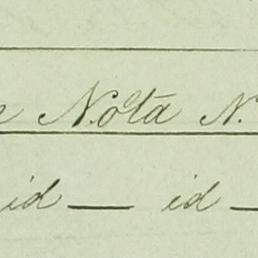 e Nota N.
id — id —